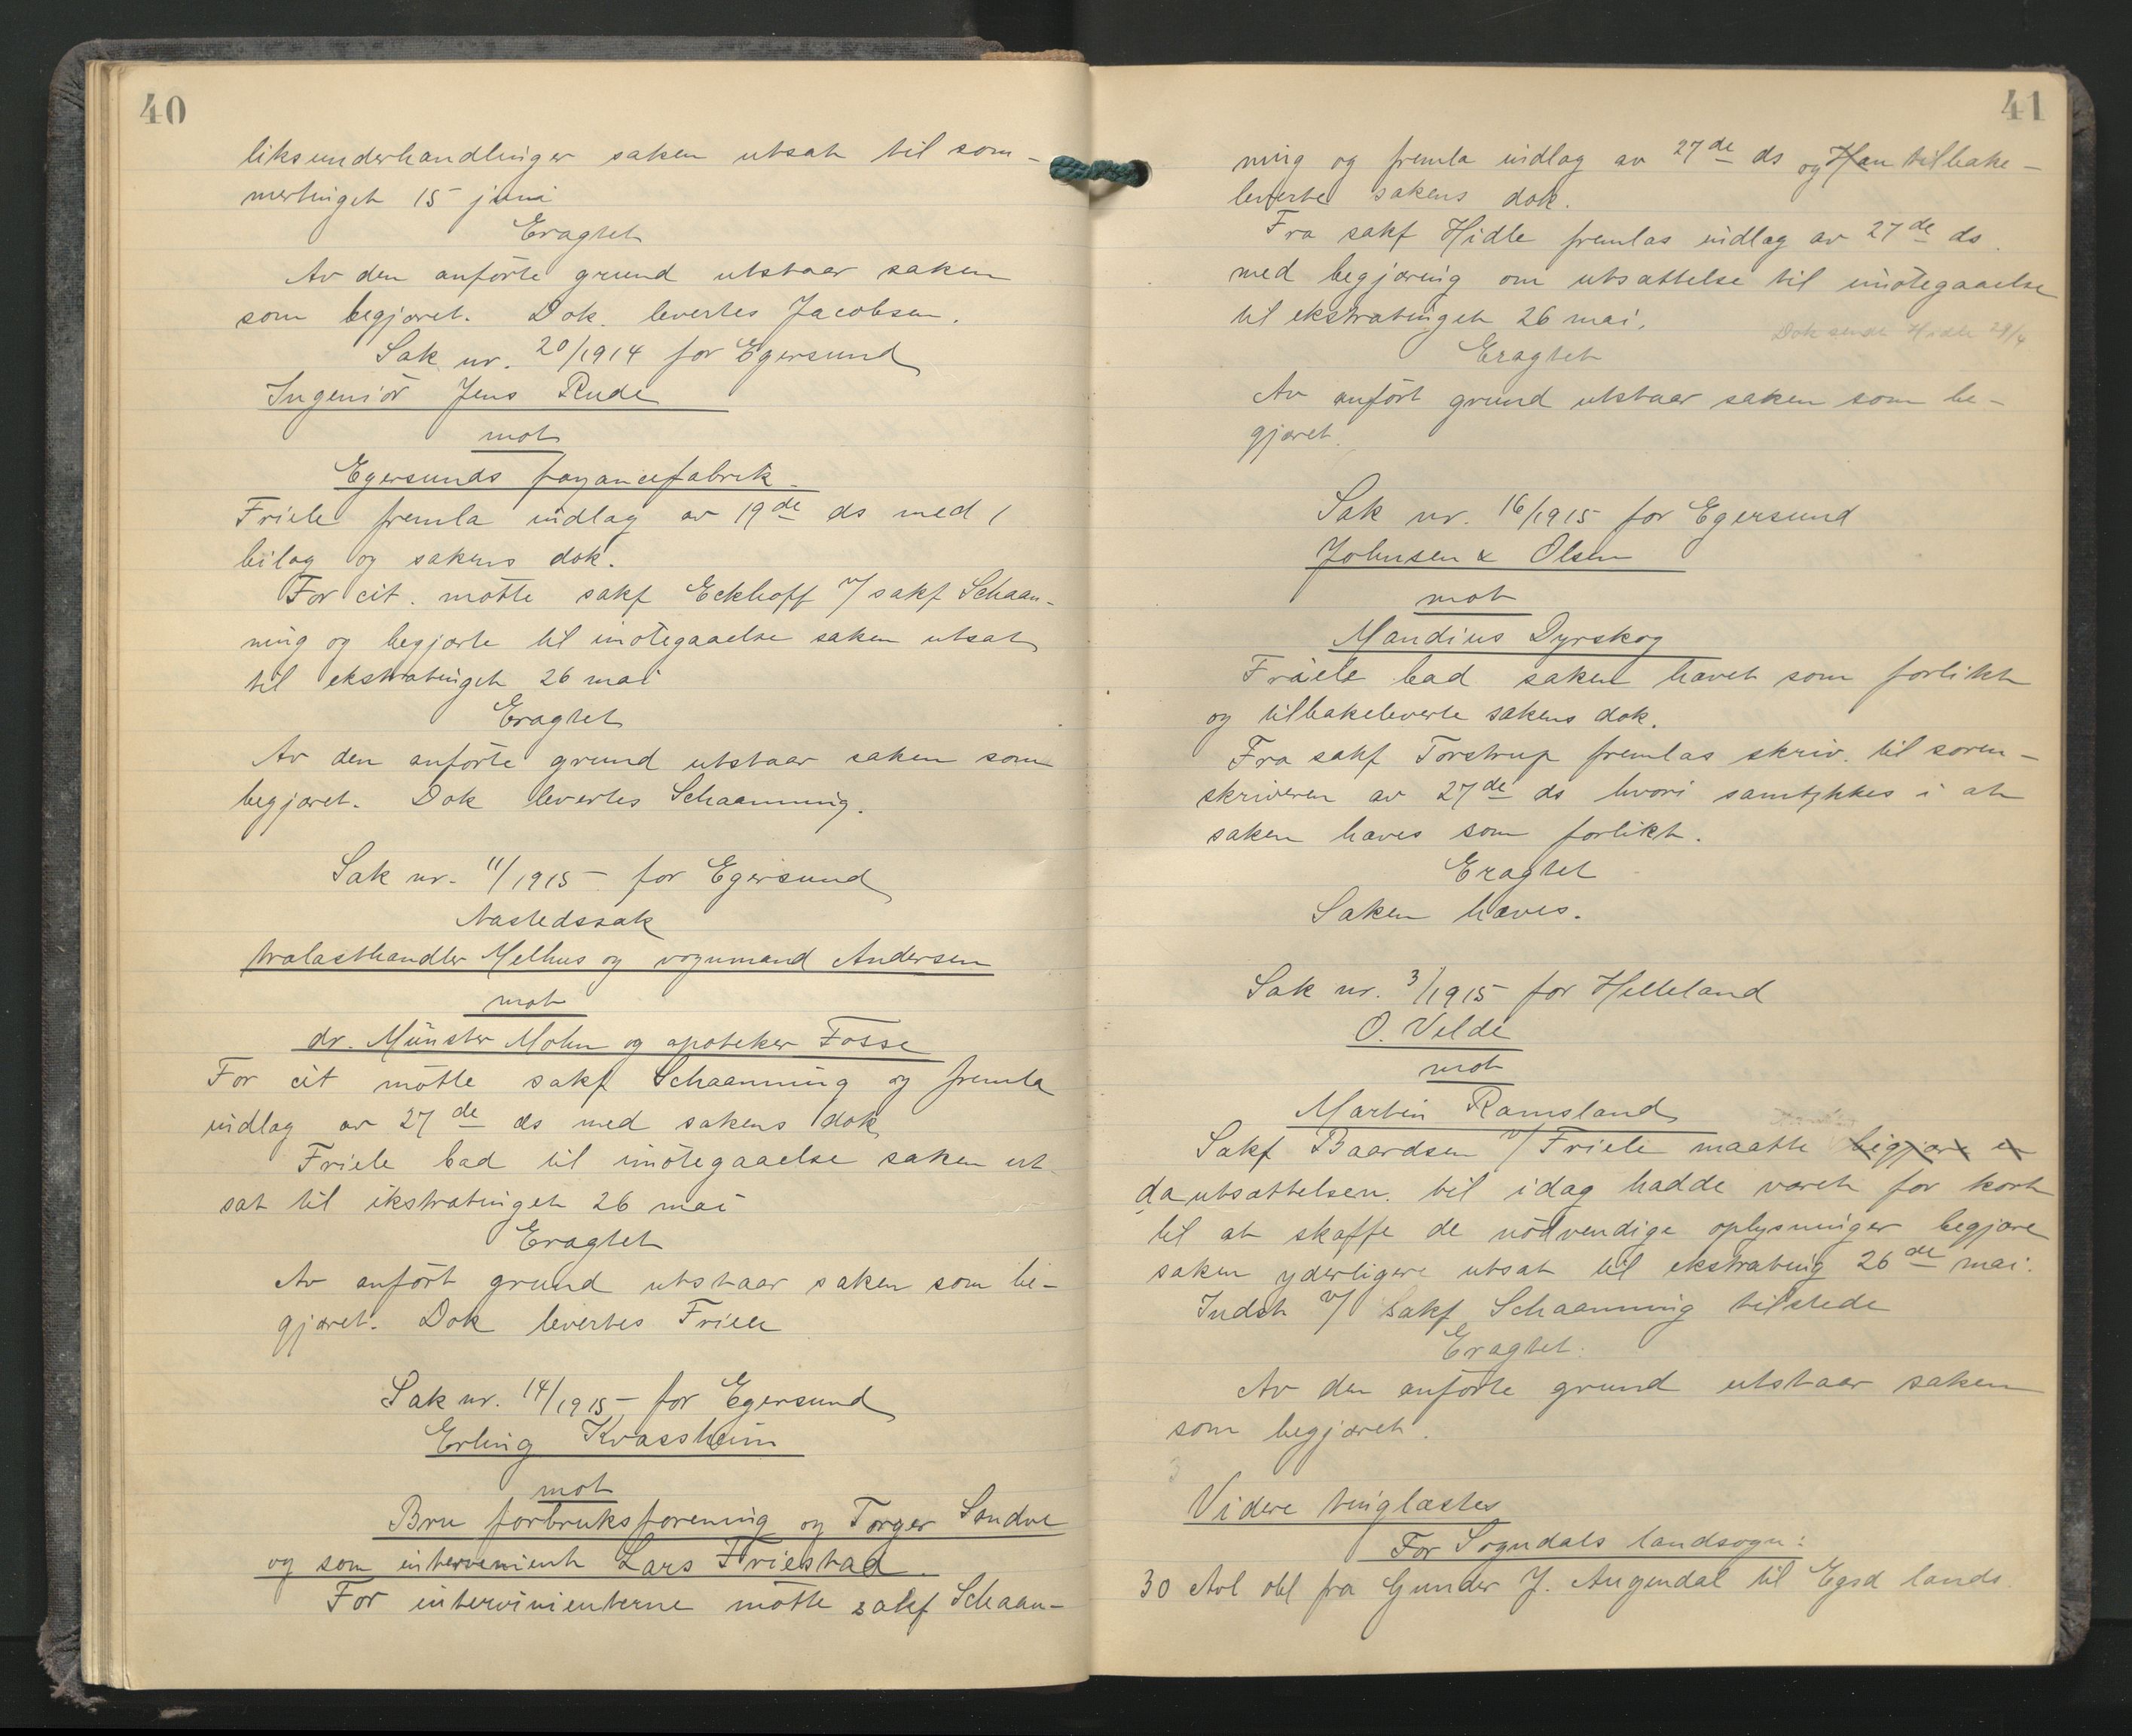 40
liksunderhandlinger saken utsat til som-
mertinget 15 juni
Eragtet
Av den anførte grund utstaar saken
som begjæret. Dok. levertes Jacobsen.
Sak nr. 20/1914 for Egersund
Ingeniør Jens Rude
mot
Egersunds fayancefabrik.
Friele fremla indlæg av 19de ds med 1
bilag og sakens dok.
For cit. møtte sakf Eckhoff v/ sakf Schaan-
ning og begjærte til imøtegaaelse saken utsat
til ekstratinget 26 mai
Eragtet
Av den anførte grund utstaar saken som
begjæret. Dok levertes Schaanning.
Sak nr. 11/1915 for Egersund
Aastedssak
trælasthandler Melhus og vognmand Andersen
mot
dr. Münster Mohn og apoteker Fosse
For cit møtte sakf Schaanning og fremla
indlæg av 27de ds med sakens dok
Friele bad til imøtegaaelse saken ut-
sat til ekstratinget 26 mai
Eragtet
Av anført grund utstaar saken som be-
gjæret. Dok levertes Friele
Sak nr. 14/1915 for Egersund
Erling Kvassheim
mot
Bru forbruksforening og Torger Sandve
og som intervenient Lars Friestad.
For intervinienterne møtte sakf Schaan-
41
ning og fremla indlæg av 27de ds og Han tilbake-
leverte sakens dok.
Fra sakf Hidle fremlas indlæg av 27de ds.
med begjæring om utsættelse til imøtegaaelse
til ekstratinget 26 mai.
Dok sendt Hidle 29/4
Eragtet
Av anført grund utstaar saken som be-
gjæret.
Sak nr. 16/1915 for Egersund
Johnsen & Olsen
mot
Mandius Dyrskog
Friele bad saken hævet som forlikt
og tilbakeleverte sakens dok.
Fra sakf Torstrup fremlas skriv. til soren-
skriveren av 27de ds hvori samtykkes i at
saken hæves som forlikt.
Eragtet
Saken hæves.
Sak nr. 3/1915 for Helleland
O. Velde
mot
Martin Ramsland
Sakf Baardsen v/ Friele maatte begjære en
da utsættelsen til idag hadde været for kort
til at skaffe de nødvendige oplysninger begjære
saken yderligere utsat til ekstrating 26de mai.
Indst v/ Sakf Schaanning tilstede
Eragtet.
Av den anførte grund utstaar saken
som begjæret.
Videre tinglæstes
For Sogndals landsogn:
30 Avl obl fra Gunder J. Augendal til Egsd lands.